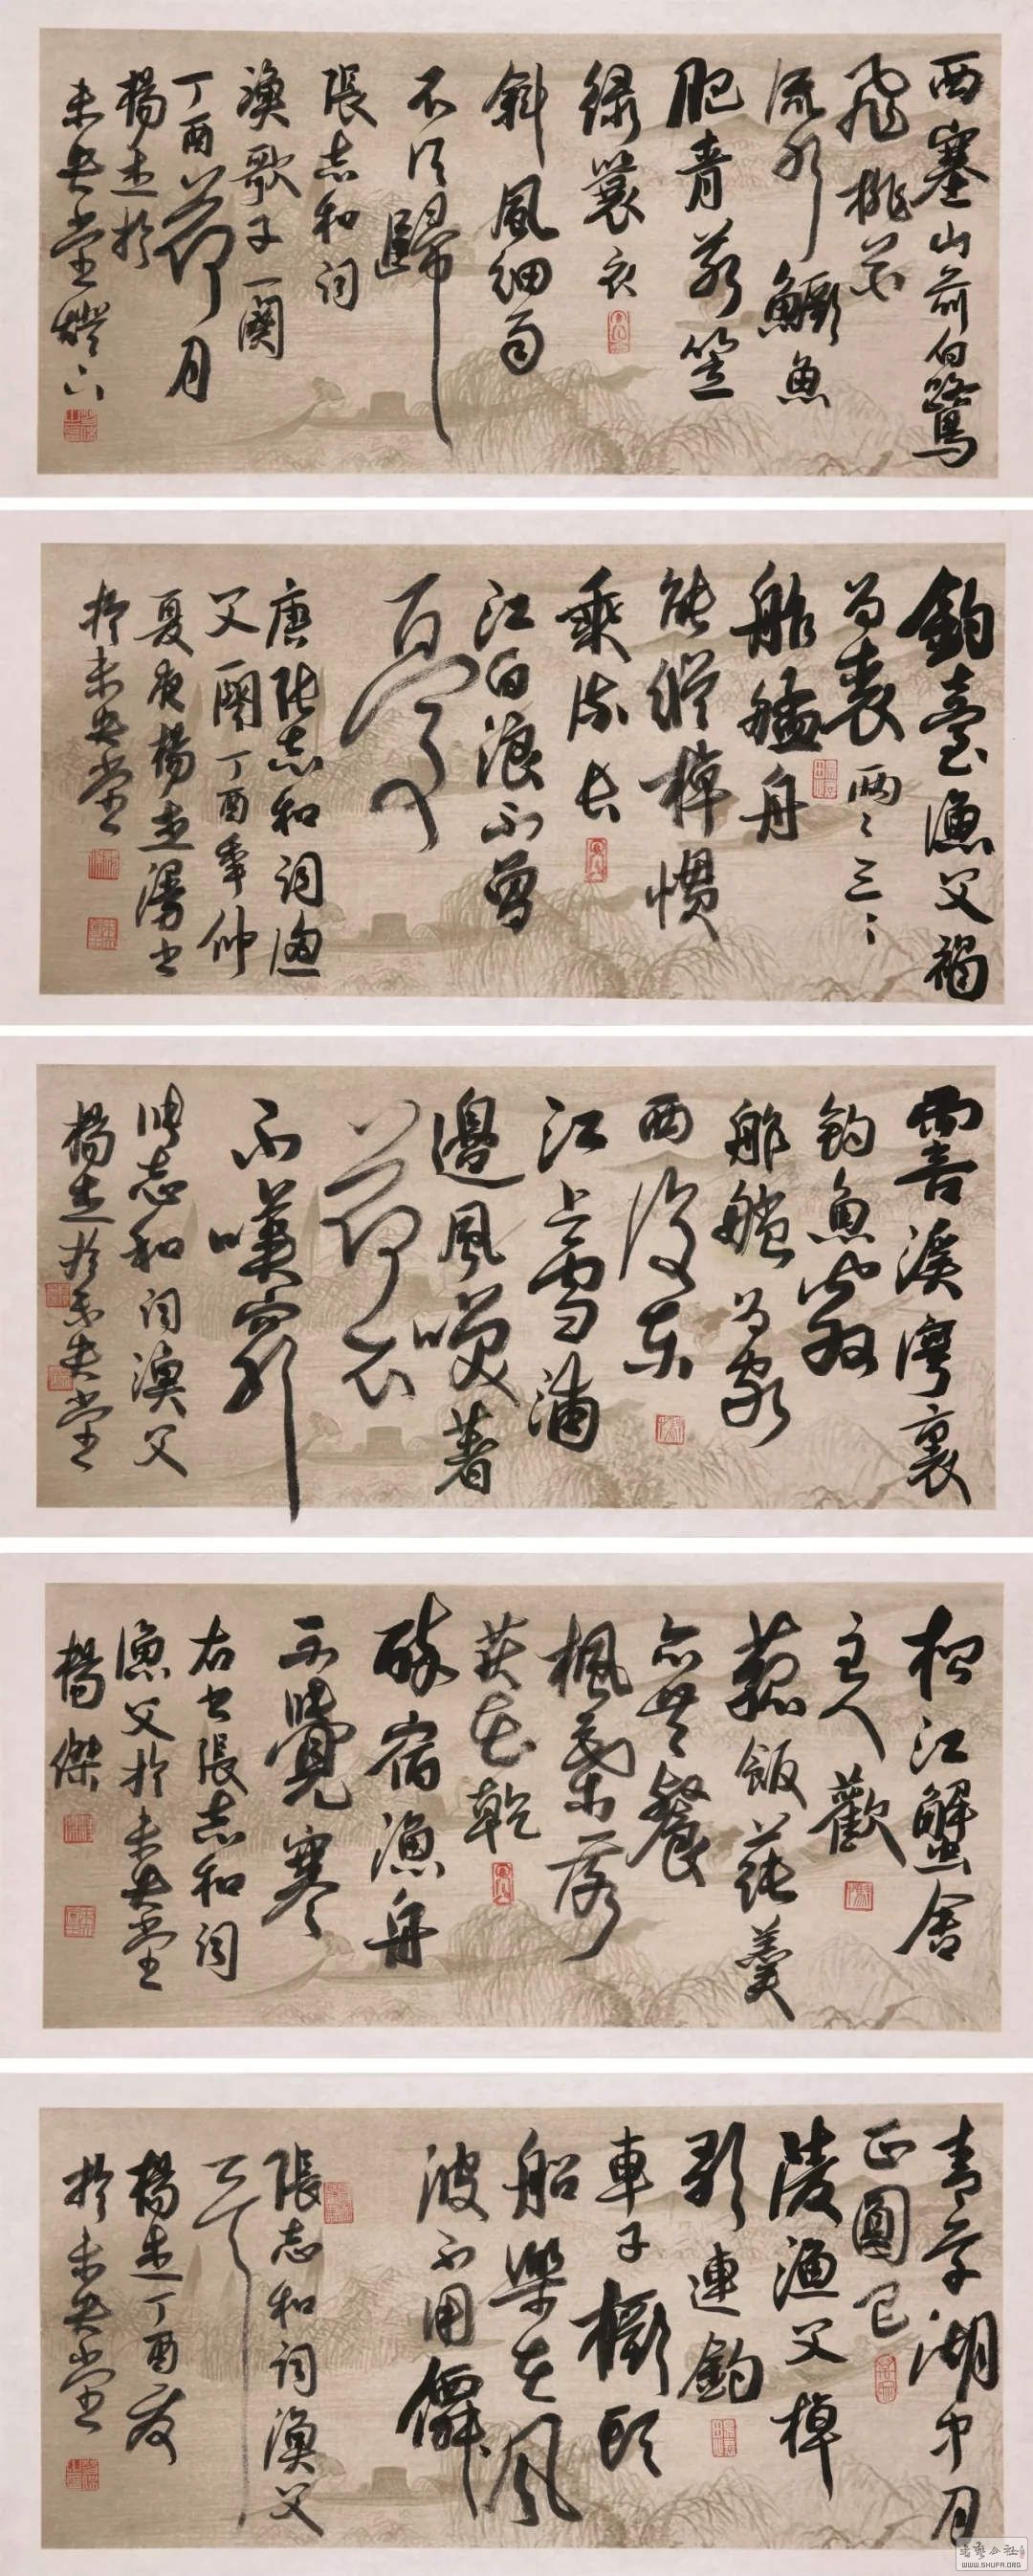 西塞山前白鷺
飛桃花
流水鱖魚
肥青箬笠
綠蓑衣
斜風細雨
不須歸
張志和詞
漁歌子一闋
丁酉荷月
楊杰於
未央堂燈下
釣臺漁父褐
為裘兩兩三三
舴艋舟
能縱棹慣
乘流長
江白浪不曾
憂
唐張志和詞漁
父一闋丁酉年仲
夏夜楊杰漫書
於未央堂
霅溪灣裏
釣魚翁
舴艋為家
西復東
江上雪浦
邊風笑著
荷衣
不嘆窮
張志和詞漁父
楊杰於未央堂
松江蟹舍
主人歡
菰飯蓴羹
亦共餐
楓葉落
荻花乾
醉宿漁舟
不覺寒
右書張志和詞
漁父於未央堂
楊傑
青草湖中月
正圓巴
陵漁父棹
歌連釣
車子橛頭
船樂在風
波不用僊
張志和詞漁父
楊杰丁酉夏
於未央堂
书艺公社
WWW.SHUFA.ORG